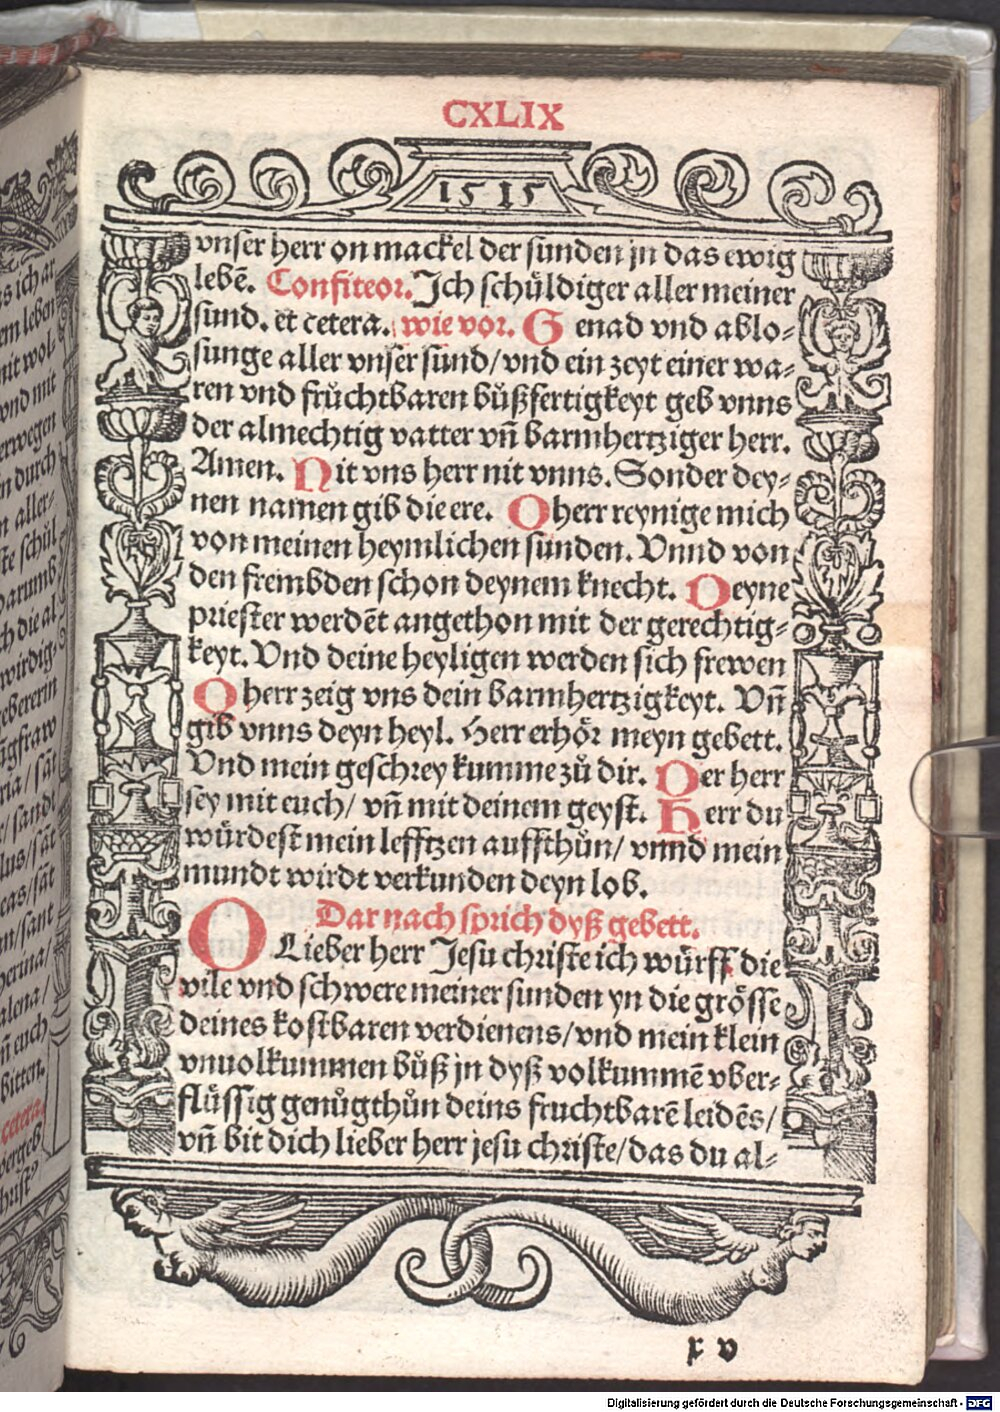 CXLIX
1515
vnser herr on mackel der sunden jn das ewig
lebē. Confiteor. Jch schüldiger aller meiner
sund. et cetera. wie vor. Genad vnd ablo⸗
sunge aller vnser sünd/vnd ein zeyt einer wa⸗
ren vnd frůchtbaren bůßfertigkeyt geb vnns
der almechtig vatter vñ barmhertziger herr.
Amen. Nit vns herr nit vnns. Sonder dey⸗
nen namen gib die ere. O herr reynige mich
von meinen heymlichen sunden. Vnnd von
den frembden schon deynem knecht. Deyne
priester werdēt angethon mit der gerechtig⸗
keyt. Vnd deine heyligen werden sich frewen
O herr zeig vns dein barmhertzigkeyt. Vñ
gib vnns deyn heyl. Herr erhör meyn gebett.
Vnd mein geschrey kumme zů dir. Der herr
sey mit euch/ vñ mit deinem geyst. Herr du
würdest mein lefftzen auffthůn/ vnnd mein
mundt wirdt verkunden deyn lob.
Dar nach sprich dyß gebett.
O Lieber herr Jesu christe ich würff die
vile vnd schwere meiner sunden yn die grösse
deines kostbaren verdienens/vnd mein klein
vnuolkummen bůß jn dyß volkummē vber⸗
flüssig genůgthůn deins fruchtbarē leidēs/
vñ bit dich lieber herr jesu christe/das du al⸗
Digitalisierung gefördert durch die Deutsche Forschungsgemeinschaft - DFG